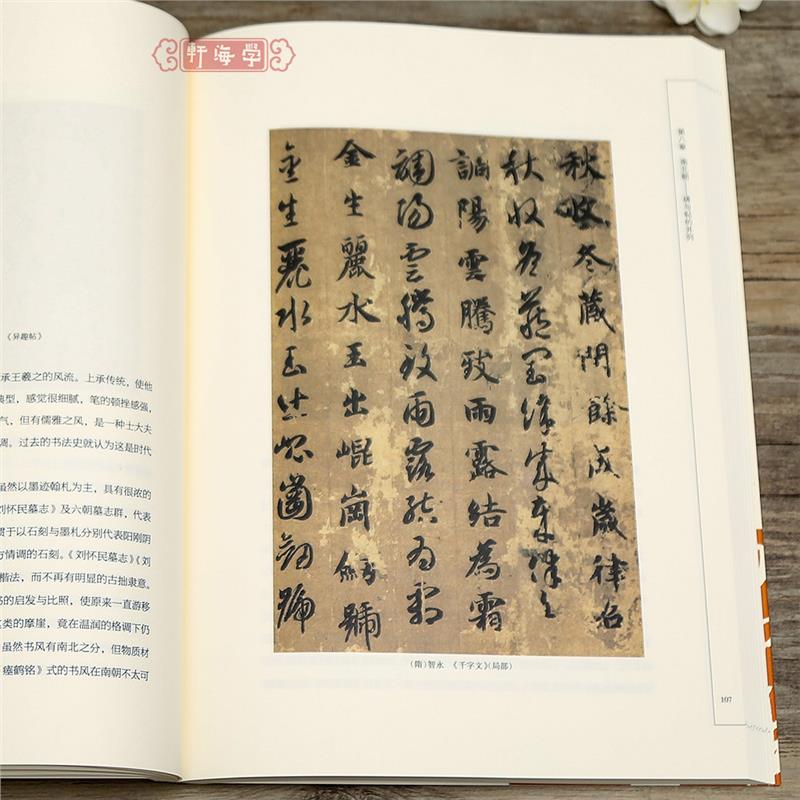 軒海學
《异趣帖》
承王羲之的风流。上承传统，使他
典型，感觉很细腻，笔的顿挫感强，
气，但有儒雅之风，是一种士大夫
调。过去的书法史就认为这是时代
虽然以墨迹翰札为主，具有很浓的
刘怀民墓志》及六朝墓志群，代表
惯于以石刻与墨札分别代表阳刚阴
方情调的石刻。《刘怀民墓志》《刘
楷法，而不再有明显的古拙隶意。
的启发与比照，使原来一直游移
这类的摩崖，竟在温润的格调下仍
虽然书风有南北之分，但物质材
瘗鹤铭》式的书风在南朝不太可
秋收冬藏閏餘成歲律召
秋收冬藏閏餘成歲律召
調陽雲騰致雨露結為霜
調陽雲騰致雨露結為霜
金生麗水玉出崐崗劒號
金生麗水玉出崐崗劒號
(隋)智永 《千字文》(局部)
第八章
107